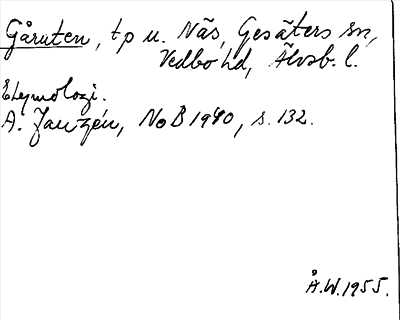 Gåruten, tp u. Näs, Gesäters sn,
Vedbo hd, Älvsb. l.
Etymologi.
A. Janzén, NoB 1940, s. 132.
Å.W. 1955.